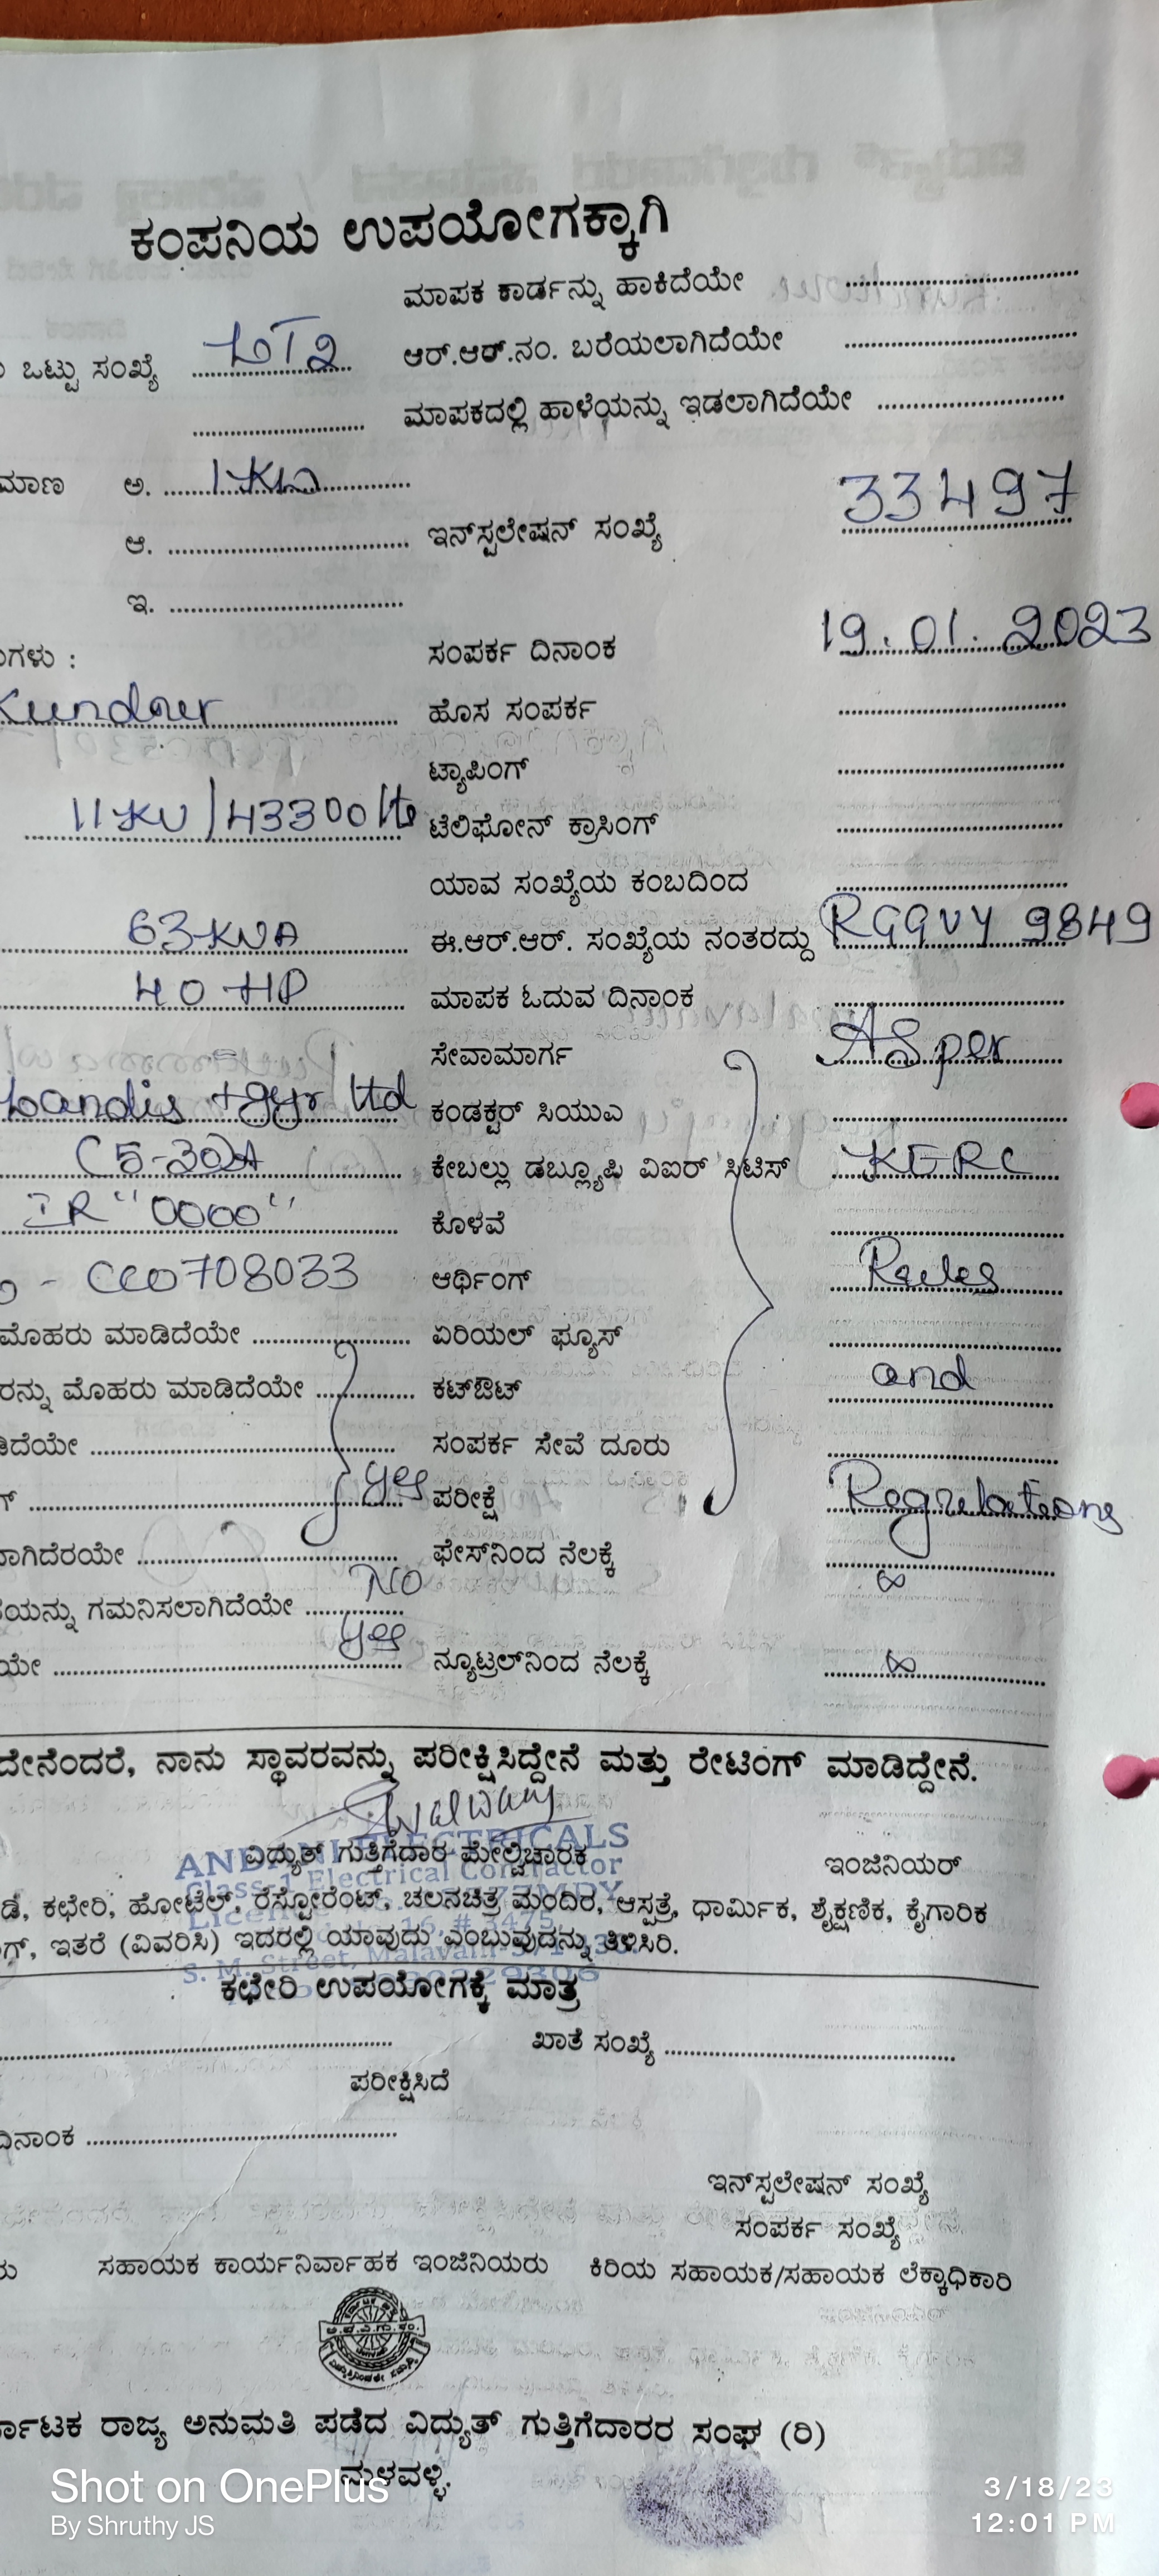 ಕಂಪನಿಯ ಉಪಯೋಗಕ್ಕಾಗಿ
ಮಾಪಕ ಕಾರ್ಡನ್ನು ಹಾಕಿದೆಯೇ
ಒಟ್ಟು ಸಂಖ್ಯೆ LT2 ಆರ್.ಆರ್.ನಂ. ಬರೆಯಲಾಗಿದೆಯೇ
ಮಾಪಕದಲ್ಲಿ ಹಾಳೆಯನ್ನು ಇಡಲಾಗಿದೆಯೇ
ಮಾಣ ಅ. 1KW
ಆ. ಇನ್‌ಸ್ಟಲೇಷನ್ ಸಂಖ್ಯೆ 33497
ಇ.
ಗಳು : ಸಂಪರ್ಕ ದಿನಾಂಕ 19.01.2023
Kundour ಹೊಸ ಸಂಪರ್ಕ
ಟ್ಯಾಪಿಂಗ್
11KV/43300 ಟೆಲಿಫೋನ್ ಕ್ರಾಸಿಂಗ್
ಯಾವ ಸಂಖ್ಯೆಯ ಕಂಬದಿಂದ
63 KVA ಈ.ಆರ್.ಆರ್. ಸಂಖ್ಯೆಯ ನಂತರದ್ದು RGGVY 9849
40 HP ಮಾಪಕ ಓದುವ ದಿನಾಂಕ
ಸೇವಾಮಾರ್ಗ AS per
Landis +gyr ltd ಕಂಡಕ್ಟರ್ ಸಿಯುಎ
(5-30)A ಕೇಬಲ್ಲು ಡಬ್ಲ್ಯೂಪಿ ವಿಐರ್ ಸಿಟಿಸ್ KERC
IR "0000" ಕೊಳವೆ
- CC0708033 ಆರ್ಥಿಂಗ್ Rules
ಮೊಹರು ಮಾಡಿದೆಯೇ ಏರಿಯಲ್ ಫ್ಯೂಸ್
ರನ್ನು ಮೊಹರು ಮಾಡಿದೆಯೇ ಕಟ್‌ಔಟ್ and
ಡಿದೆಯೇ ಸಂಪರ್ಕ ಸೇವೆ ದೂರು
ಗ್ yes ಪರೀಕ್ಷೆ Regulations
ವಾಗಿದೆರಯೇ ಫೇಸ್‌ನಿಂದ ನೆಲಕ್ಕೆ ∞
ಯನ್ನು ಗಮನಿಸಲಾಗಿದೆಯೇ NO
ಯೇ yes ನ್ಯೂಟ್ರಲ್‌ನಿಂದ ನೆಲಕ್ಕೆ ∞
ದೇನೆಂದರೆ, ನಾನು ಸ್ಥಾವರವನ್ನು ಪರೀಕ್ಷಿಸಿದ್ದೇನೆ ಮತ್ತು ರೇಟಿಂಗ್ ಮಾಡಿದ್ದೇನೆ.
ELECTRICALS
ವಿದ್ಯುತ್ ಗುತ್ತಿಗೆದಾರ ಮೇಲ್ವಿಚಾರಕ ಇಂಜಿನಿಯರ್
Class-1 Electrical Contractor
ಡಿ, ಕಛೇರಿ, ಹೋಟೆಲ್, ರೆಸ್ಟೋರೆಂಟ್, ಚಲನಚಿತ್ರ ಮಂದಿರ, ಆಸ್ಪತ್ರೆ, ಧಾರ್ಮಿಕ, ಶೈಕ್ಷಣಿಕ, ಕೈಗಾರಿಕ
ಗ್, ಇತರೆ (ವಿವರಿಸಿ) ಇದರಲ್ಲಿ ಯಾವುದು ಎಂಬುವುದನ್ನು ತಿಳಿಸಿರಿ.
S. M. Street, Malavalli
ಕಛೇರಿ ಉಪಯೋಗಕ್ಕೆ ಮಾತ್ರ
ಖಾತೆ ಸಂಖ್ಯೆ
ಪರೀಕ್ಷಿಸಿದೆ
ದಿನಾಂಕ
ಇನ್‌ಸ್ಟಲೇಷನ್ ಸಂಖ್ಯೆ
ಸಂಪರ್ಕ ಸಂಖ್ಯೆ
ರು ಸಹಾಯಕ ಕಾರ್ಯನಿರ್ವಾಹಕ ಇಂಜಿನಿಯರು ಕಿರಿಯ ಸಹಾಯಕ/ಸಹಾಯಕ ಲೆಕ್ಕಾಧಿಕಾರಿ
ರ್ನಾಟಕ ರಾಜ್ಯ ಅನುಮತಿ ಪಡೆದ ವಿದ್ಯುತ್ ಗುತ್ತಿಗೆದಾರರ ಸಂಘ (ರಿ)
ಮಳವಳ್ಳಿ.
Shot on OnePlus
By Shruthy JS
3/18/23
12:01 PM